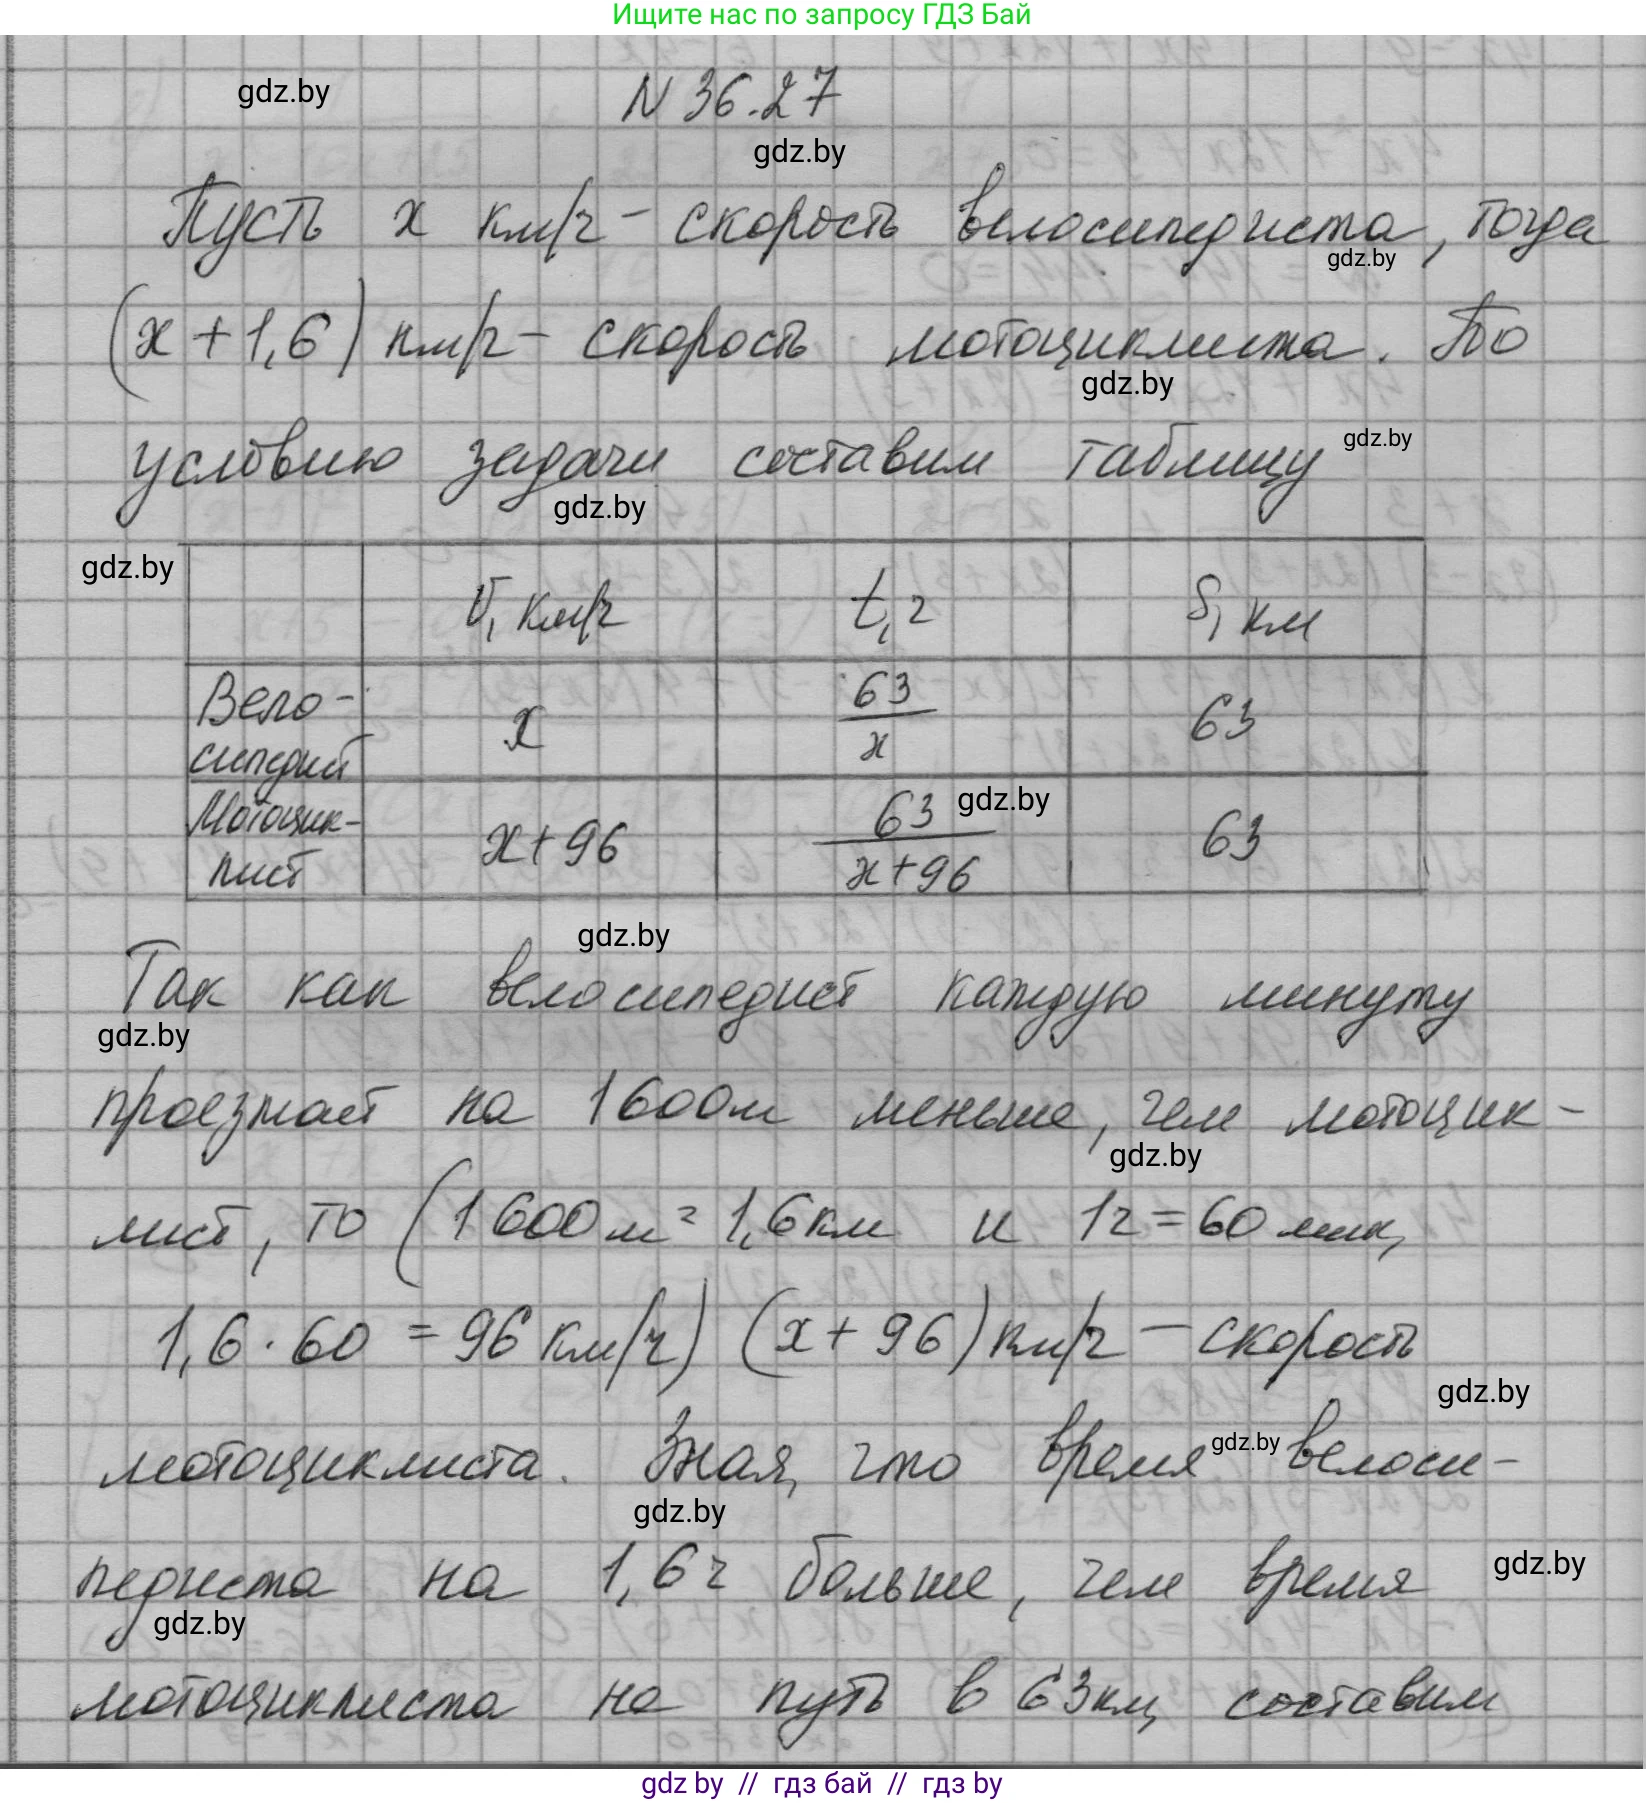 Ищите нас по запросу ГДЗ Бай
gdz.by
N 36.27
gdz.by
Пусть x км/ч - скорость велосипедиста, тогда
gdz.by
(x + 1,6) км/ч - скорость мотоциклиста. По
gdz.by
условию задачи составим таблицу
gdz.by
gdz.by
gdz.by
V, км/ч t, ч S, км
Вело-
сипедист x 63/x 63
Мотоцик-
лист x+96 63/(x+96) 63
gdz.by
gdz.by
Так как велосипедист каждую минуту
gdz.by
проезжает на 1600м меньше, чем мотоцик-
gdz.by
лист, то (1600м = 1,6км и 1ч = 60 мин,
1,6 · 60 = 96 км/ч) (x + 96) км/ч - скорость
gdz.by
мотоциклиста. Зная, что время велоси-
gdz.by
gdz.by
педиста на 1,6ч больше, чем время
gdz.by
gdz.by
мотоциклиста на путь в 63км, составим
gdz by // гдз бай // гдз by